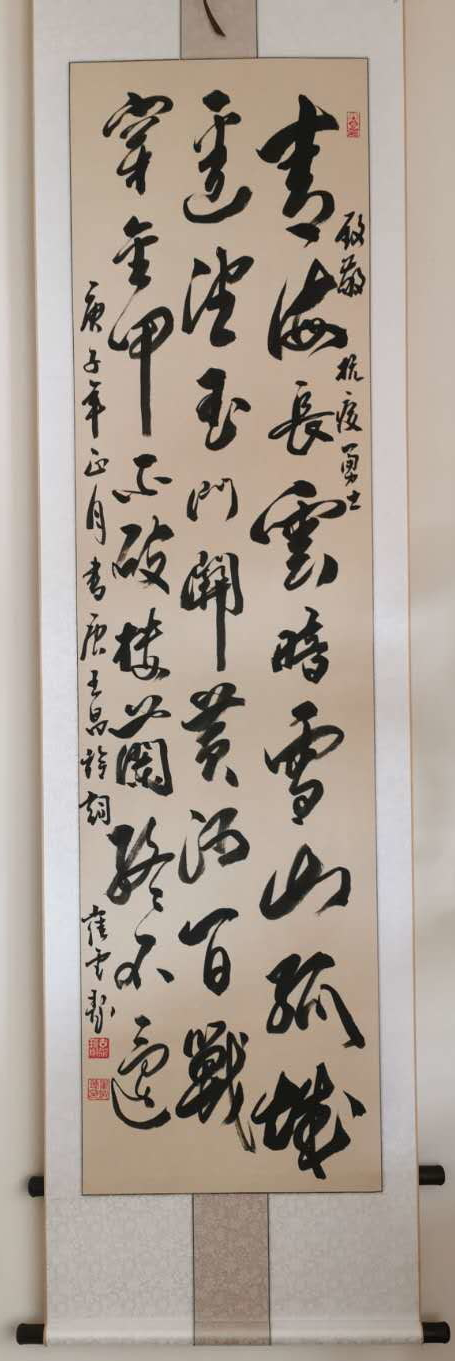 致敬抗疫勇士
青海長雲暗雪山孤城
遥望玉門關黄沙百戰
穿金甲不破樓蘭終不還
庚子年正月書唐王昌龄詞 崔雲